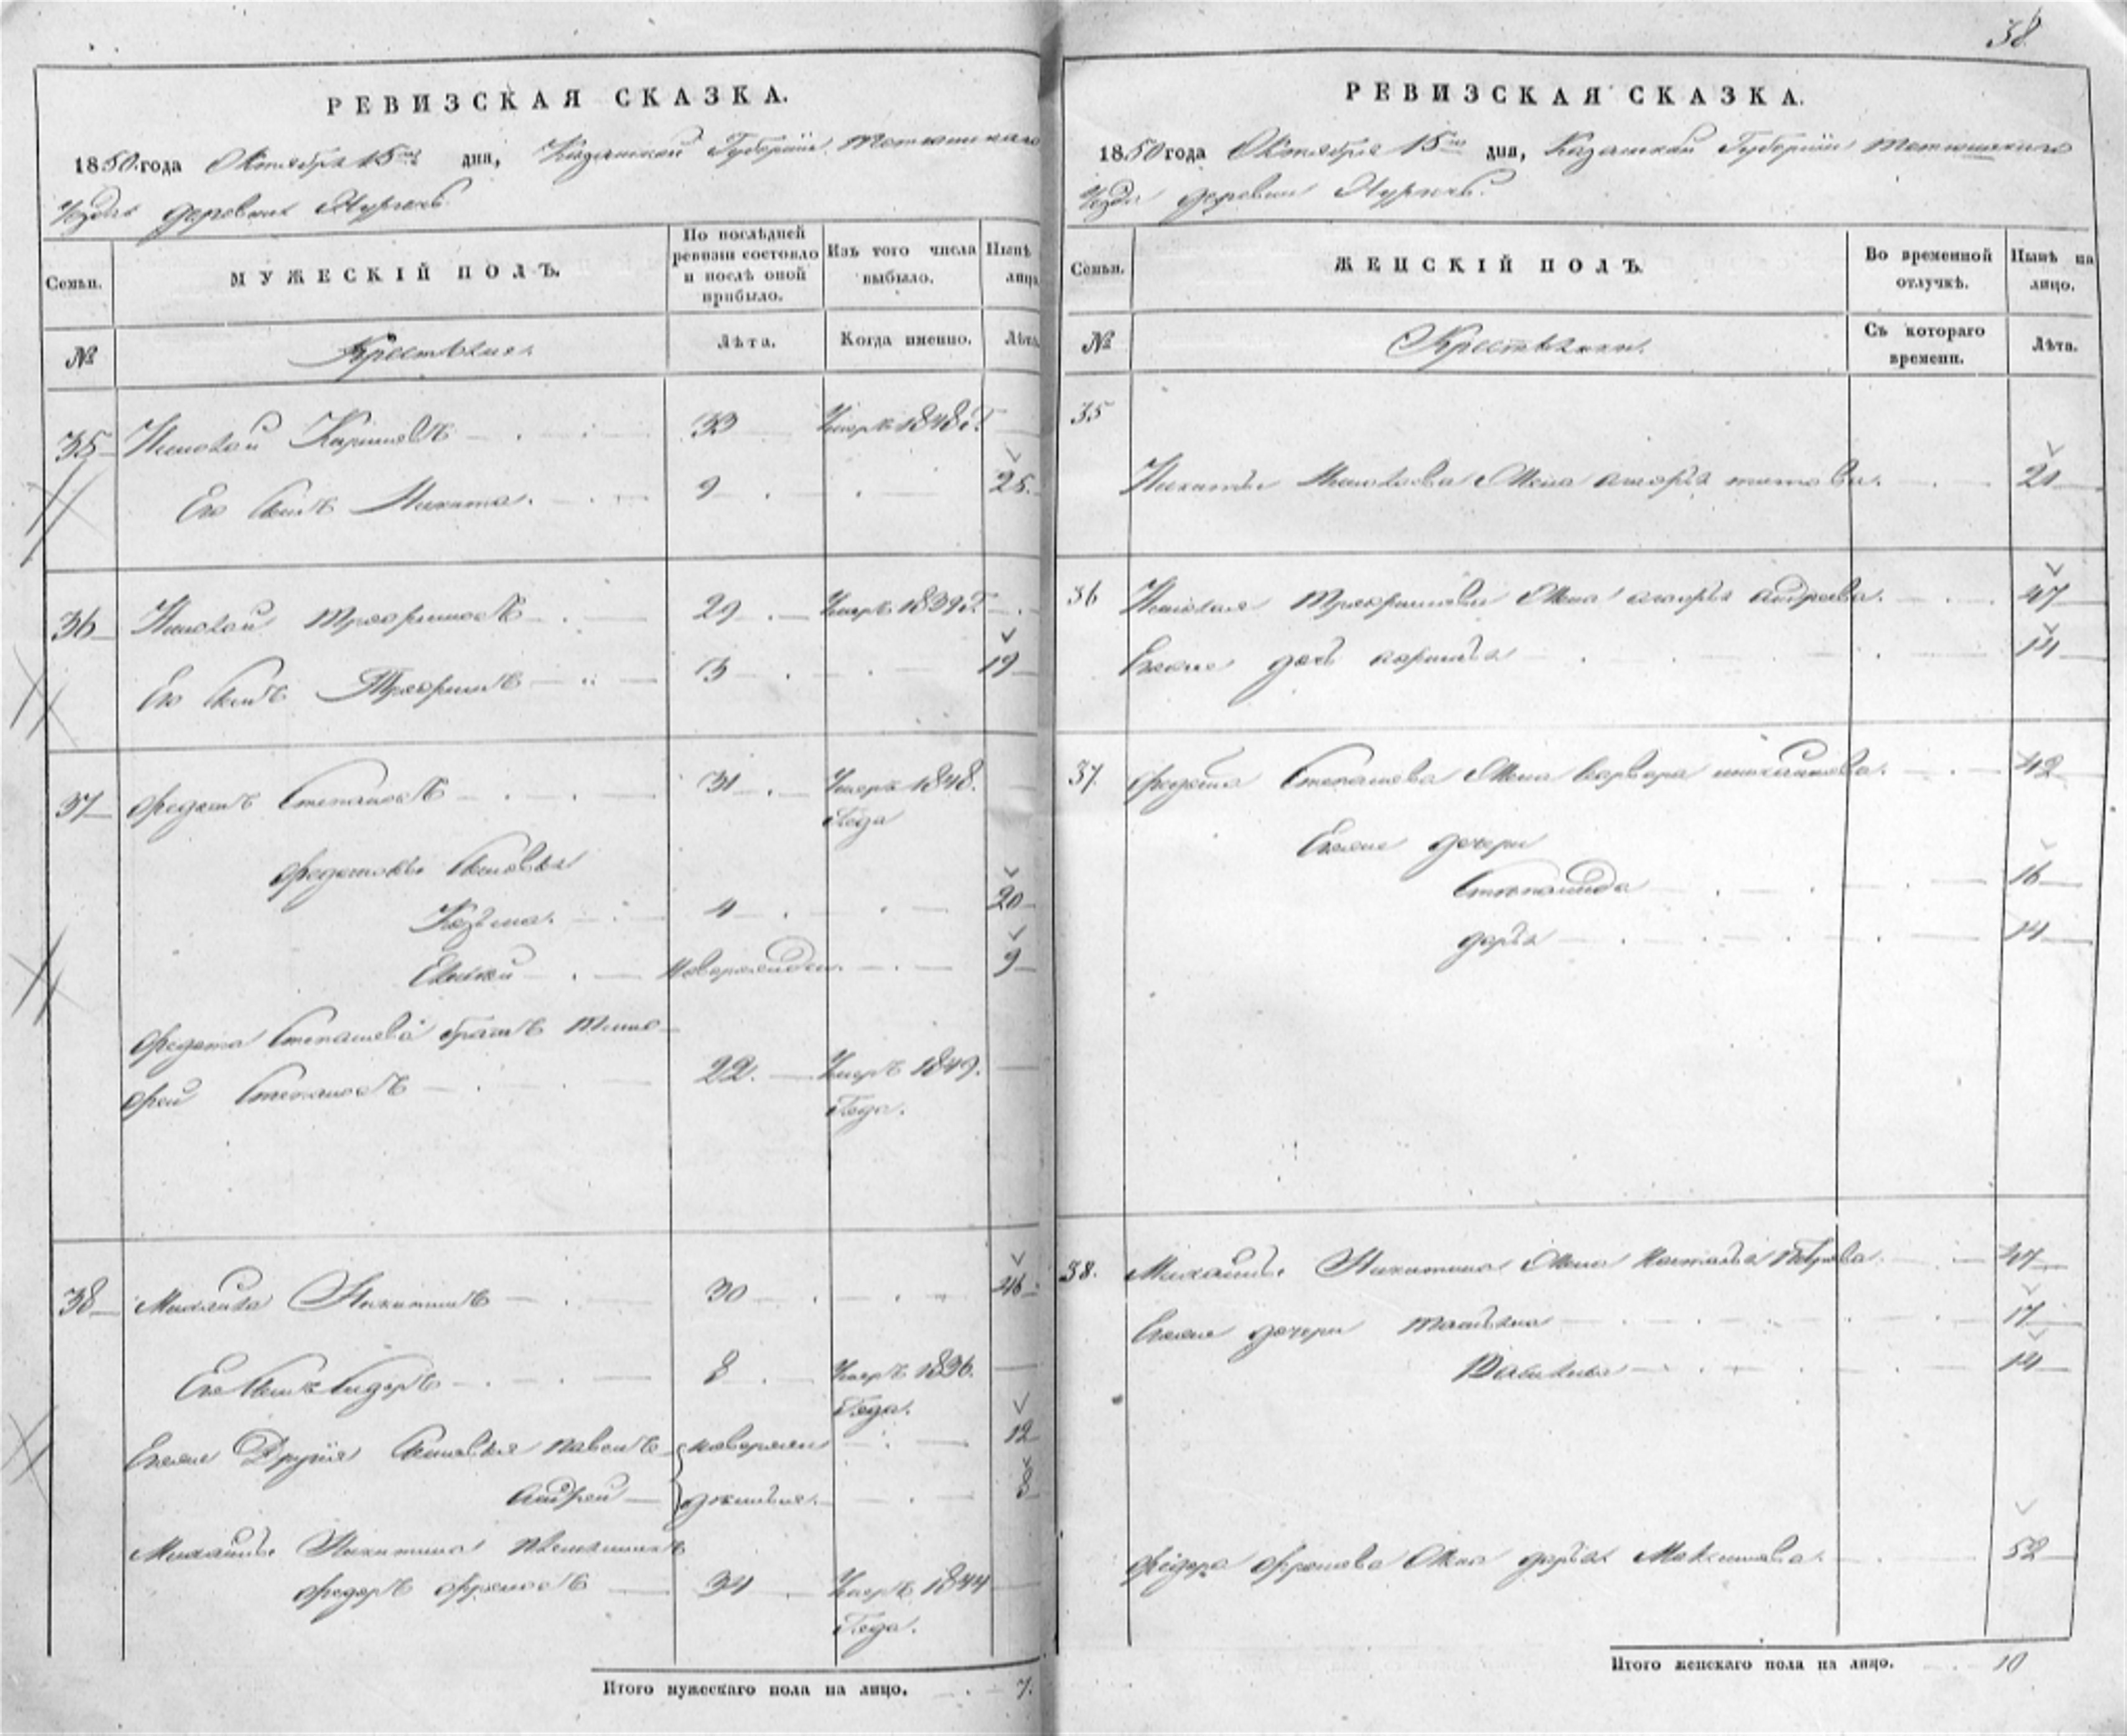 38
РЕВИЗСКАЯ СКАЗКА.
1850 года Октября 15го дня, Казанской Губернии, Тетюшскаго
Уезда деревни
Семьи.
МУЖЕСКІЙ ПОЛЪ.
По послѣдней ревизіи состояло и послѣ оной прибыло.
Изъ того числа выбыло.
Нынѣ лица
№
Крестьяне.
Лѣта.
Когда именно.
Лѣта
35 Николай 33 Умеръ 1848 Г.
Его Сынъ Никита. 9 25.
36 Николай Трофимовъ 29 Умеръ 1839 Г.
Его Сынъ Трофимъ 13 19
37 Федотъ Степановъ 31 Умеръ 1848.
Года
Федотовы Сыновья
Козьма. 4 20
Евсей новорожден. 9
Федота Степанова братъ Тимо-
фей Степановъ 22. Умеръ 1849.
Года.
38 Михайла Никитинъ 30 46
Его Сынъ Сидоръ 8 Умеръ 1836.
Года.
Егоже Другія Сыновья Павелъ новорож 12
Андрей денные. 3
Михайлы Никитина племянникъ
Федоръ 34 Умеръ 1844
Года.
Итого мужескаго пола на лицо. 7.
РЕВИЗСКАЯ СКАЗКА.
1850 года Октября 15го дня, Казанской Губернии Тетюшскаго
Уезда деревни
Семьи.
ЖЕНСКІЙ ПОЛЪ.
Во временной отлучкѣ.
Нынѣ на лицо.
№
Крестьянки.
Съ котораго времени.
Лѣта.
35
Никиты Николаева Жена Титова. 21
36 Николая Трофимова Жена Андреева. 47
Егоже дочь 14
37. Федота Степанова Жена Варвара 42
Егоже дочери
Степанида 16
Дарья 14
38. Михайлы Никитина Жена Наталья Петрова 47
Егоже дочери Татьяна 17
14
Федора Жена Дарья Максимова. 52
Итого женскаго пола на лицо. 10